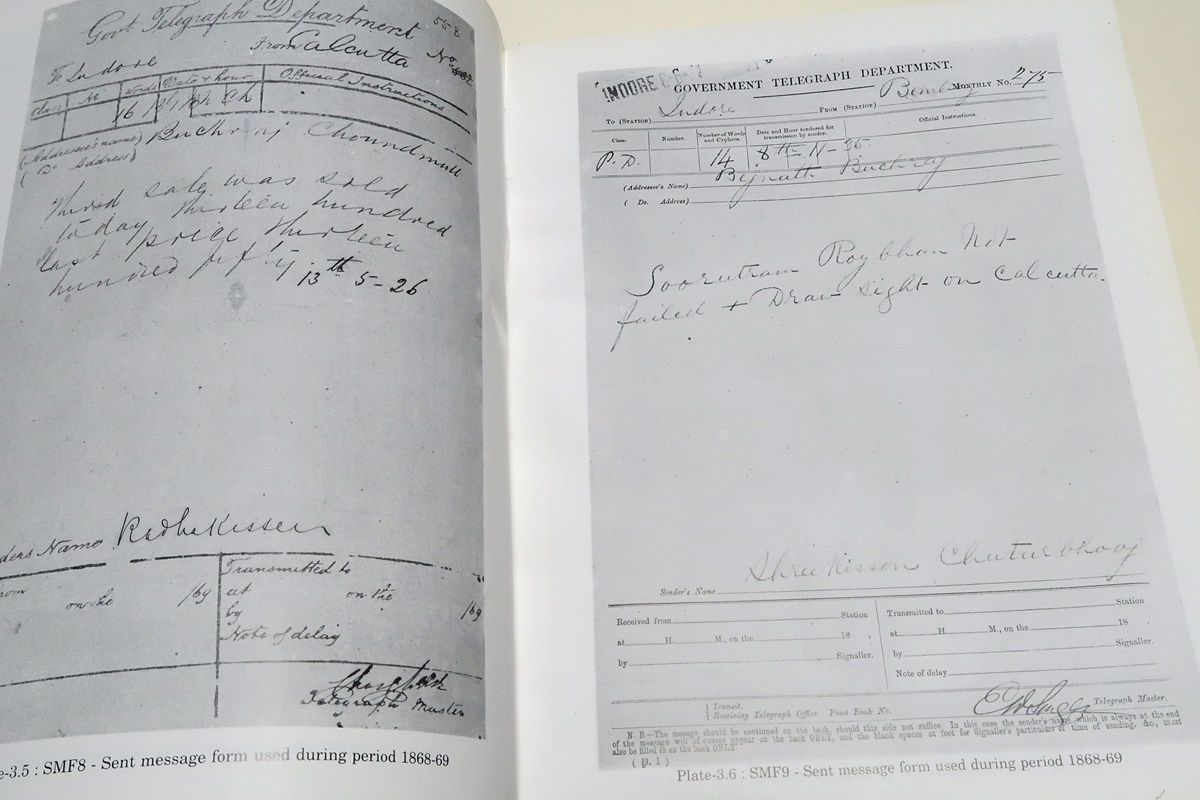 558
Govt Telegraph Department
To Indore From Calcutta No
Class No Words Date & hour Official Instructions
16
(Addressee's name) Buchraj Choundmull
(Do. Address)
Third sale was sold
today thirteen hundred
last price thirteen
hundred fifty
13th 5-26
ders Name Radhakissen
rom
on the /69
Transmitted to
at on the
by /69
Note of delay
Telegraph Master
e-3.5 : SMF8 - Sent message form used during period 1868-69
INDORE
GOVERNMENT TELEGRAPH DEPARTMENT.
To (Station) Indore From (Station) Bombay Monthly No. 275
Class. Number. Number of Words and Cyphers. Date and Hour tendered for transmission by sender. Official Instructions.
P.D. 14 8th 11-36
(Addressee's Name) Bijnath Buchraj
(Do. Address)
Soorutram Roybhan Not
failed + Draw sight on Calcutta.
Sender's Name Shreekisson Chuturbhooj
Received from Station
at H. M., on the 18 ,
by Signaller.
Transmitted to Station
at H. M., on the 18 ,
by Signaller.
Note of delay
Telegraph Master.
{ Transit.
{ Receiving Telegraph Office. Pena Book No.
N. B.—The message should be continued on the back, should this side not suffice. In this case the sender's name which is always at the end
of the message will of course appear on the back ONLY, and the blank spaces at foot for Signaller's particulars of time of sending, &c., must
also be filled in on the back ONLY.
( p. 1 )
Plate-3.6 : SMF9 - Sent message form used during period 1868-69